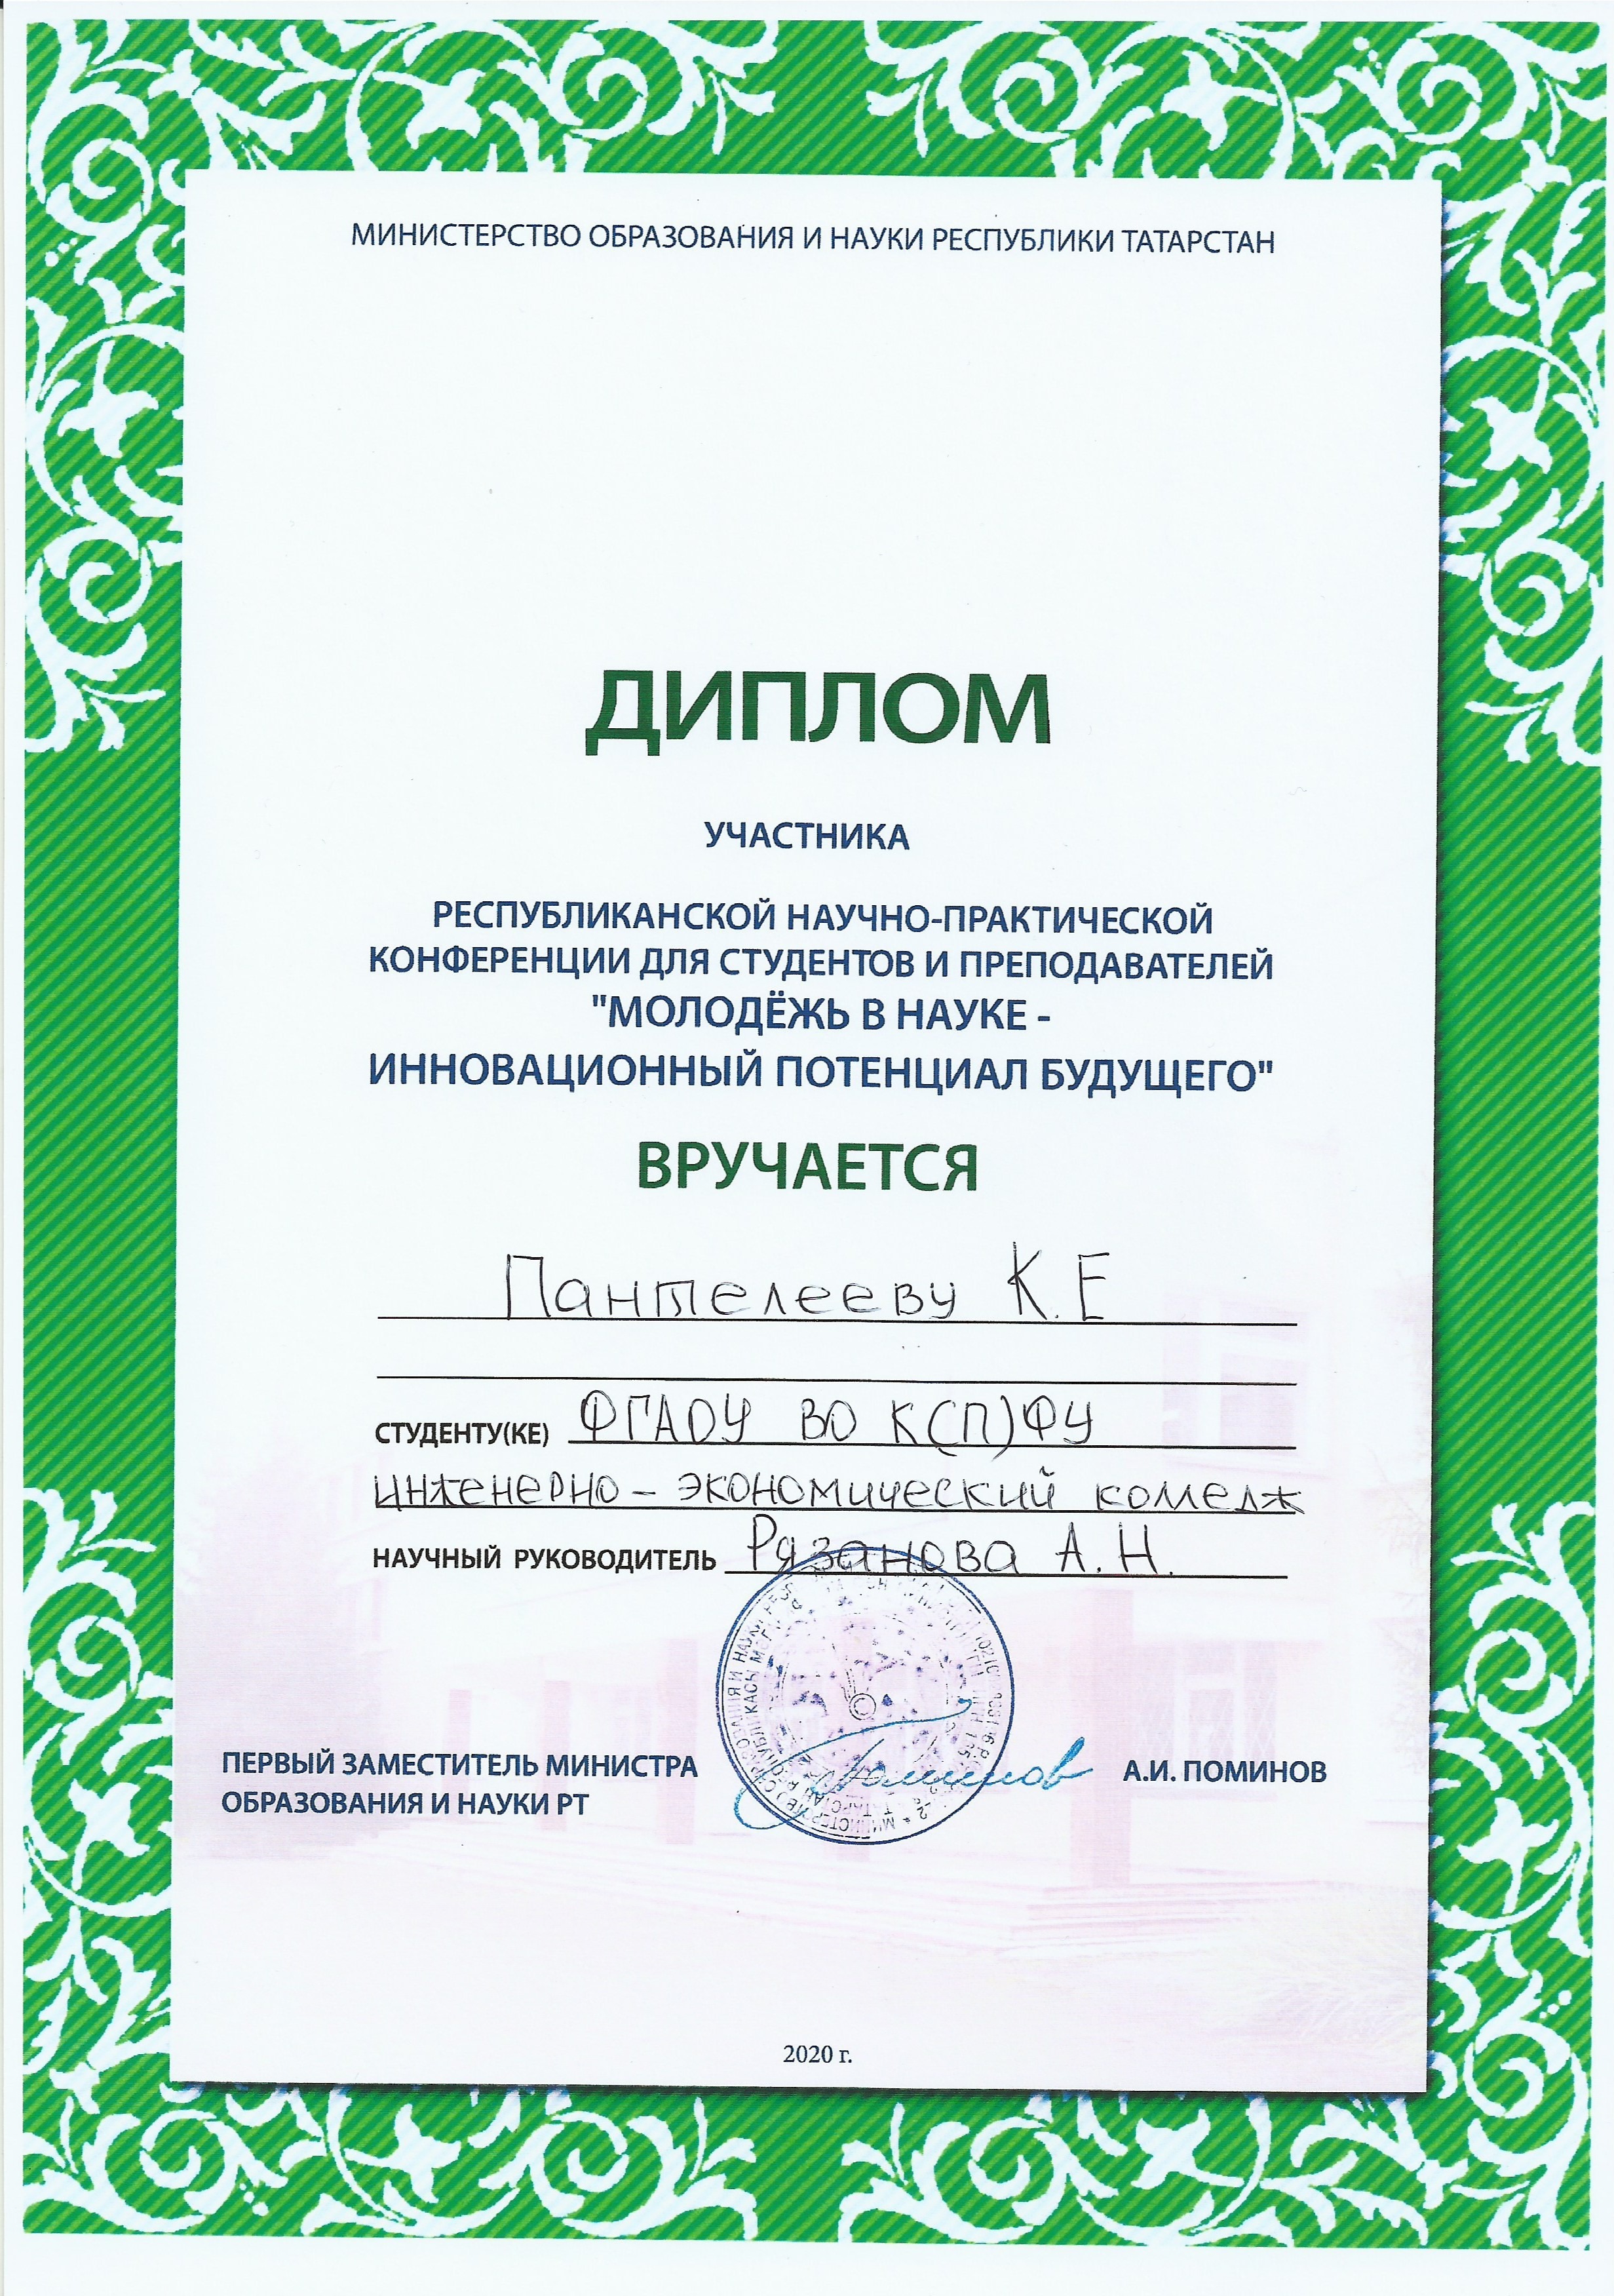 МИНИСТЕРСТВО ОБРАЗОВАНИЯ И НАУКИ РЕСПУБЛИКИ ТАТАРСТАН
ДИПЛОМ
УЧАСТНИКА
РЕСПУБЛИКАНСКОЙ НАУЧНО-ПРАКТИЧЕСКОЙ
КОНФЕРЕНЦИИ ДЛЯ СТУДЕНТОВ И ПРЕПОДАВАТЕЛЕЙ
"МОЛОДЁЖЬ В НАУКЕ -
ИННОВАЦИОННЫЙ ПОТЕНЦИАЛ БУДУЩЕГО"
ВРУЧАЕТСЯ
Пантелееву К.Е
СТУДЕНТУ(КЕ) ФГАОУ ВО К(П)ФУ
инженерно - экономический колледж
НАУЧНЫЙ РУКОВОДИТЕЛЬ Рязанова А.Н.
ПЕРВЫЙ ЗАМЕСТИТЕЛЬ МИНИСТРА
ОБРАЗОВАНИЯ И НАУКИ РТ
А.И. ПОМИНОВ
2020 г.